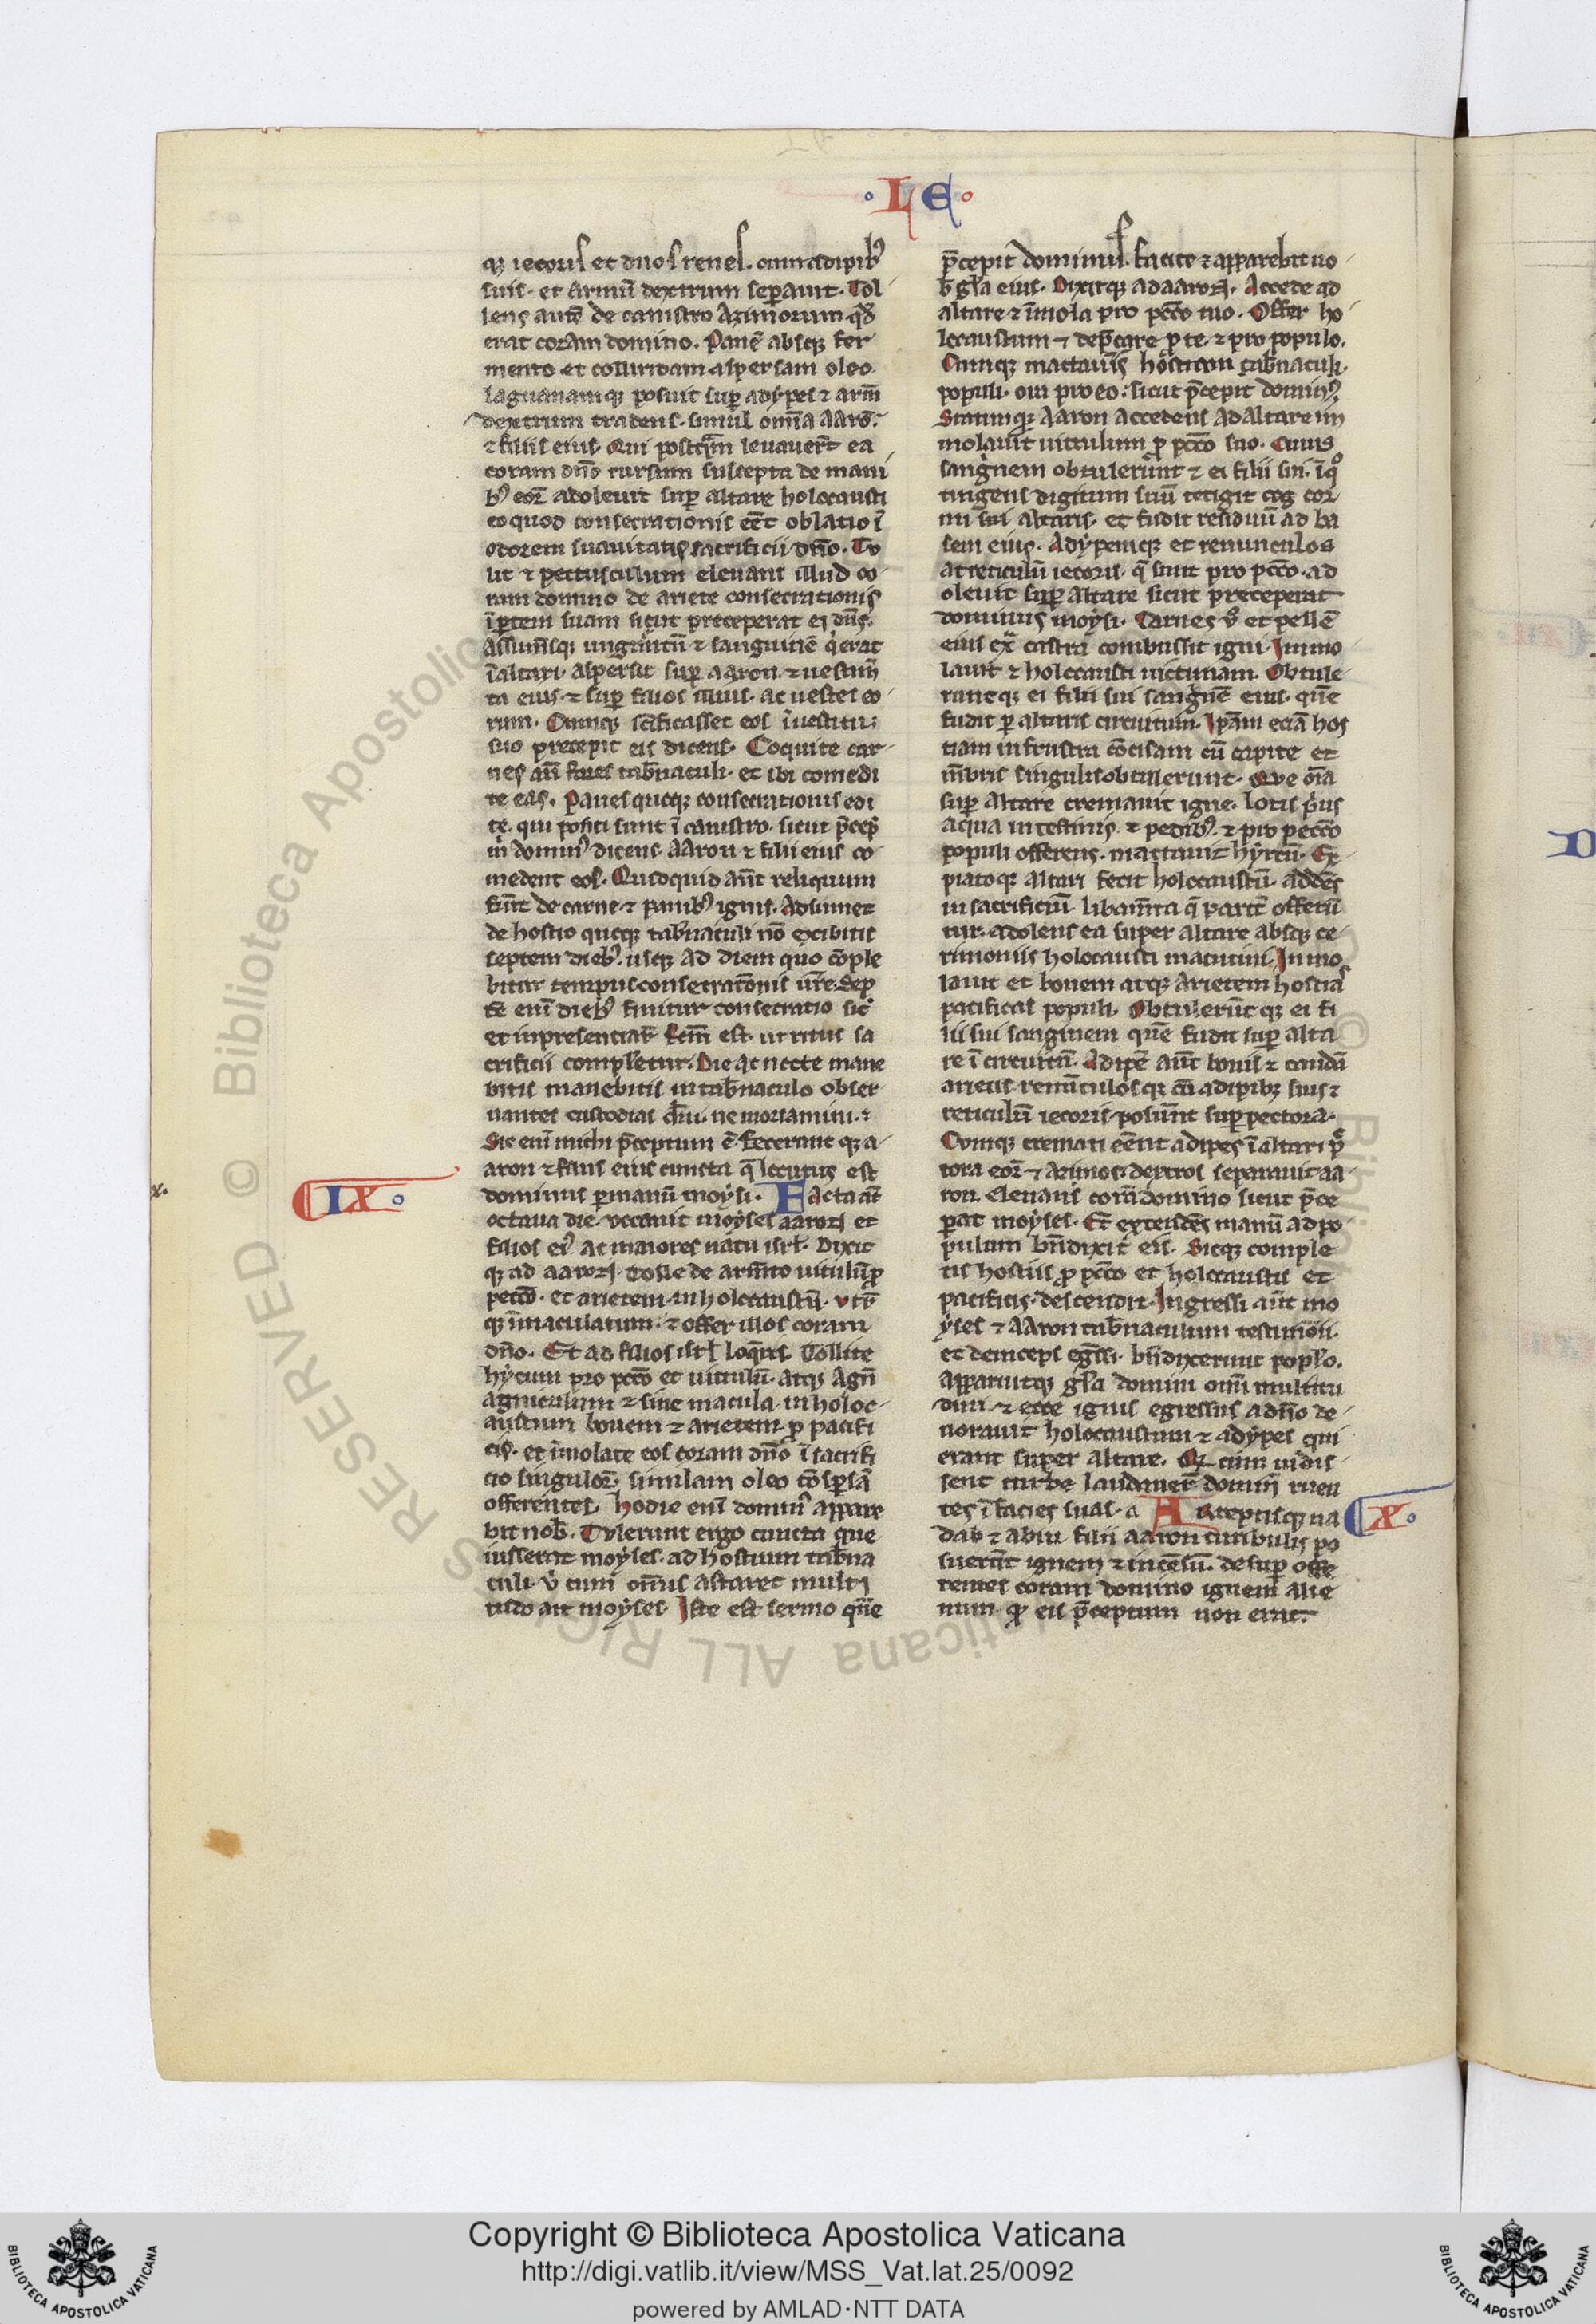 · L E ·
q; iecoris et duos renes. cum adipib;
suis. et armū dextrum sep̄auit. Tol
lens autē de canistro azimorum qd̄
erat coram domino. Panē absq; fer
mento et colliridam aspersam oleo
laguanamq; posuit sup̄ adypes ⁊ armū
dextrum tradens. simul om̄ia aarō.
⁊ filiis eius. Qui postq̄m leuauer̄t ea
coram dn̄o rursum suscepta de mani
b; eoꝝ adoleuit sup̄ altare holocausti
eo quod consecrationis eēt oblatio ī
odorem suauitatis sacrificii dn̄o. Tu
lit ⁊ pectusculum eleuans illud co
ram domino de ariete consecrationis
ī ꝑtem suam sicut preceperat ei dn̄s.
Assumēsq; ungn̄tū ⁊ sanguinē q̇ erat
ī altari. aspersit sup̄ aaron. ⁊ uestim̄
ta eius. ⁊ sup̄ filios illius. ac uestes eo
rum. Cumq; sc̄ificasset eos ī uestitu
suo precepit eis dicens. Coquite car
nes an̄ fores tab̄naculi. et ibi comedi
te eas. Panes quoq; consecrationis edi
te. qui positi sunt ī canistro. sicut p̄cep̄
m̄ domin; dicens. aaron ⁊ filii eius co
medent eos. Quidquid aūt reliquum
fūt de carne ⁊ panib; ignis. Adsumet
de hostio quoq; tab̄naculi nō exibitis
septem dieb;. usq; ad diem quo cōple
bitur tempus consecratōnis ur̄e. Sep
tē enī dieb; finitur consecratio sic̄
et inpresentiaꝝ fc̄m est. ut ritus sa
crificii compleretur. Die ac nocte mane
bitis manebitis in tab̄naculo obser
uantes custodias dn̄i. ne moriamini.
Sic enī michi p̄ceptum ē. Fecerunt q; a
aron ⁊ filiis eius cuncta q̄ locutus est
IX · dominus ꝑ manū moysi. Facta aūt
octaua die. uocauit moyses aaron et
filios ei; ac maiores natu isrl̄. Dixit
q; ad aaron. Tolle de arm̄to uitulū ꝓ
peccō. et arietem in holocaustū. utr̄
q; īmaculatum. ⁊ offer illos coram
dn̄o. Et ad filios isrl̄ loq̄ris. Tollite
hyrcum pro pccō et uitulū. atq; agn̄
agniculum ⁊ sine macula. in holoc
austum bouem ⁊ arietem ꝓ pacifi
cis. et īmolate eos coram dn̄o ī sacrifi
cio singuloꝝ. similam oleo cōsp̄sā
offerentes. hodie enī domin; appare
bit nob̄. Tulerunt ergo cuncta que
iusserat moyses. ad hostium tab̄na
culi. v̇ cum om̄is astaret multi
tudo ait moyses. Iste est sermo quē
p̄cepit dominus. facite ⁊ apparebit uo
b̄ gl̄a eius. Dixitq; ad aaron. Accede ad
altare ⁊ īmola pro pccō tuo. Offer ho
locaustum ⁊ dep̄care ꝑ te. ⁊ pro populo.
Cumq; mactaueris hostiam tab̄naculi.
populi. ora pro eo: sicut p̄cepit domin;
Statimq; Aaron accedens ad altare im
molauit uitulum ꝓ pccō suo. Cuius
sangnem obtulerunt ⁊ ei filii sui. ī q°
tingens digitum suū tetigit cog cor
nu sui altaris. et fudit residuū ad ba
sem eius. Adypemq; et renunculos
at reticulū iecoris. q̄ sunt pro pccō. ad
oleuit sup̄ altare sicut preceperat
dominus moysi. Carnes v̇ et pellē
eius exᵃ castra combussit igni. Immo
lauit ⁊ holocausti uictimam. Obtule
runtq; ei filii sui sang̓nē eius. quē
fudit ꝑ altaris circuitum. Ipām eciā hos
tiam in frustra cōcisam cū capite et
mēbris singulis obtulerunt. Que oīa
sup̄ altare cremauit igne. lotis p̓us
aqua intestinis. ⁊ pedib;. ⁊ pro peccō
populi offerens. mactauit hyrcū. Ex
piatoq; altari fecit holocaustū. addēs
in sacrificiū. libam̄ta q̄ parit̄ offerū
tur. adolens ea super altare absq; ce
rimoniis holocausti matutini. Immo
lauit et bouem atq; arietem hostias
pacificas populi. Obtulerūtq; ei fi
lii sui sanginem quē fudit sup̄ alta
re ī circuitū. Adipē aūt bouis ⁊ caudā
arietis renūculosq; cū adipib; suis ⁊
reticulū iecoris. posuēt sup̄ pectora.
Cumq; cremati eēnt adipes ī altari pᵉ
tora eoꝝ ⁊ armos dextros separauit aa
ron. eleuans corā domino sicut p̄ce
ꝑat moyses. Et extendēs manū ad po
pulum bn̄dixit eis. Sicq; comple
tis hostiis ꝓ pccō et holocaustis et
pacificis. descendit. Ingressi aūt mo
yses ⁊ aaron tab̄naculum testimōii.
et deinceps eg̓ssi. bn̄dixerunt popl̓o.
Apparuitq; gl̄a domini omī multitu
dini. ⁊ ecce ignis egressus a dn̄o de
uorauit holocaustum ⁊ adypes qui
erant super altare. Qd̄ cum uidis
sent turbe laudauer̄t dominū ruen
tes ī facies suas. a Arreptisq; na X ·
dab ⁊ abiu filii aaron turibulis po
suerūt ignem ⁊ incēsū. desup̄ offe
rentes coram domino ignem alie
num. qd̄ eis p̄ceptum non erat.
x.
D
© Biblioteca Apostolica Vaticana ALL RIGHTS RESERVED
Copyright © Biblioteca Apostolica Vaticana
http://digi.vatlib.it/view/MSS_Vat.lat.25/0092
powered by AMLAD·NTT DATA
BIBLIOTECA APOSTOLICA VATICANA
BIBLIOTECA APOSTOLICA VATICANA